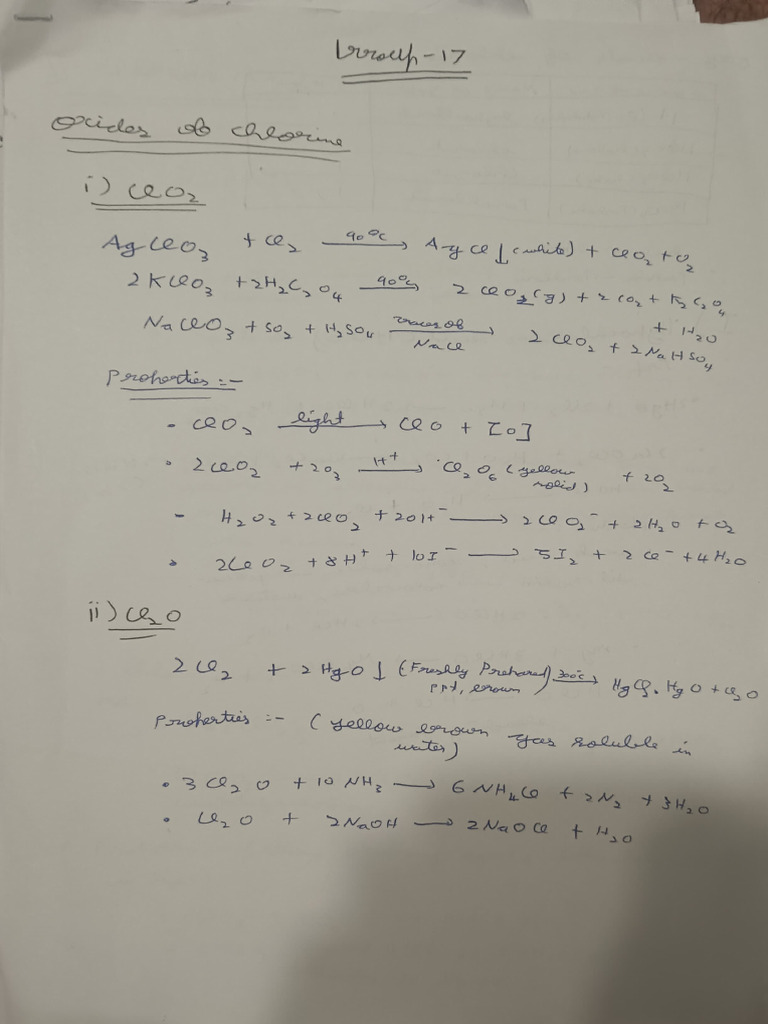 Group-17
oxides of chlorine
i) ClO2
AgClO3 + Cl2 —90°C→ AgCl↓ (white) + ClO2 + O2
2KClO3 + 2H2C2O4 —90°C→ 2ClO2(g) + 2CO2 + K2C2O4
+ H2O
NaClO3 + SO2 + H2SO4 —traces of NaCl→ 2ClO2 + 2NaHSO4
Properties :-
- ClO2 —light→ ClO + [O]
• 2ClO2 + 2O3 —H+→ Cl2O6 (yellow solid) + 2O2
- H2O2 + 2ClO2 + 2OH- → 2ClO2- + 2H2O + O2
• 2ClO2 + 8H+ + 10I- → 5I2 + 2Cl- + 4H2O
ii) Cl2O
2Cl2 + 2HgO↓ (Freshly Prepared ppt, brown) —300°C→ HgCl2.HgO + Cl2O
Properties :- (yellow brown gas soluble in
water)
• 3Cl2O + 10NH3 → 6NH4Cl + 2N2 + 3H2O
• Cl2O + 2NaOH → 2NaOCl + H2O